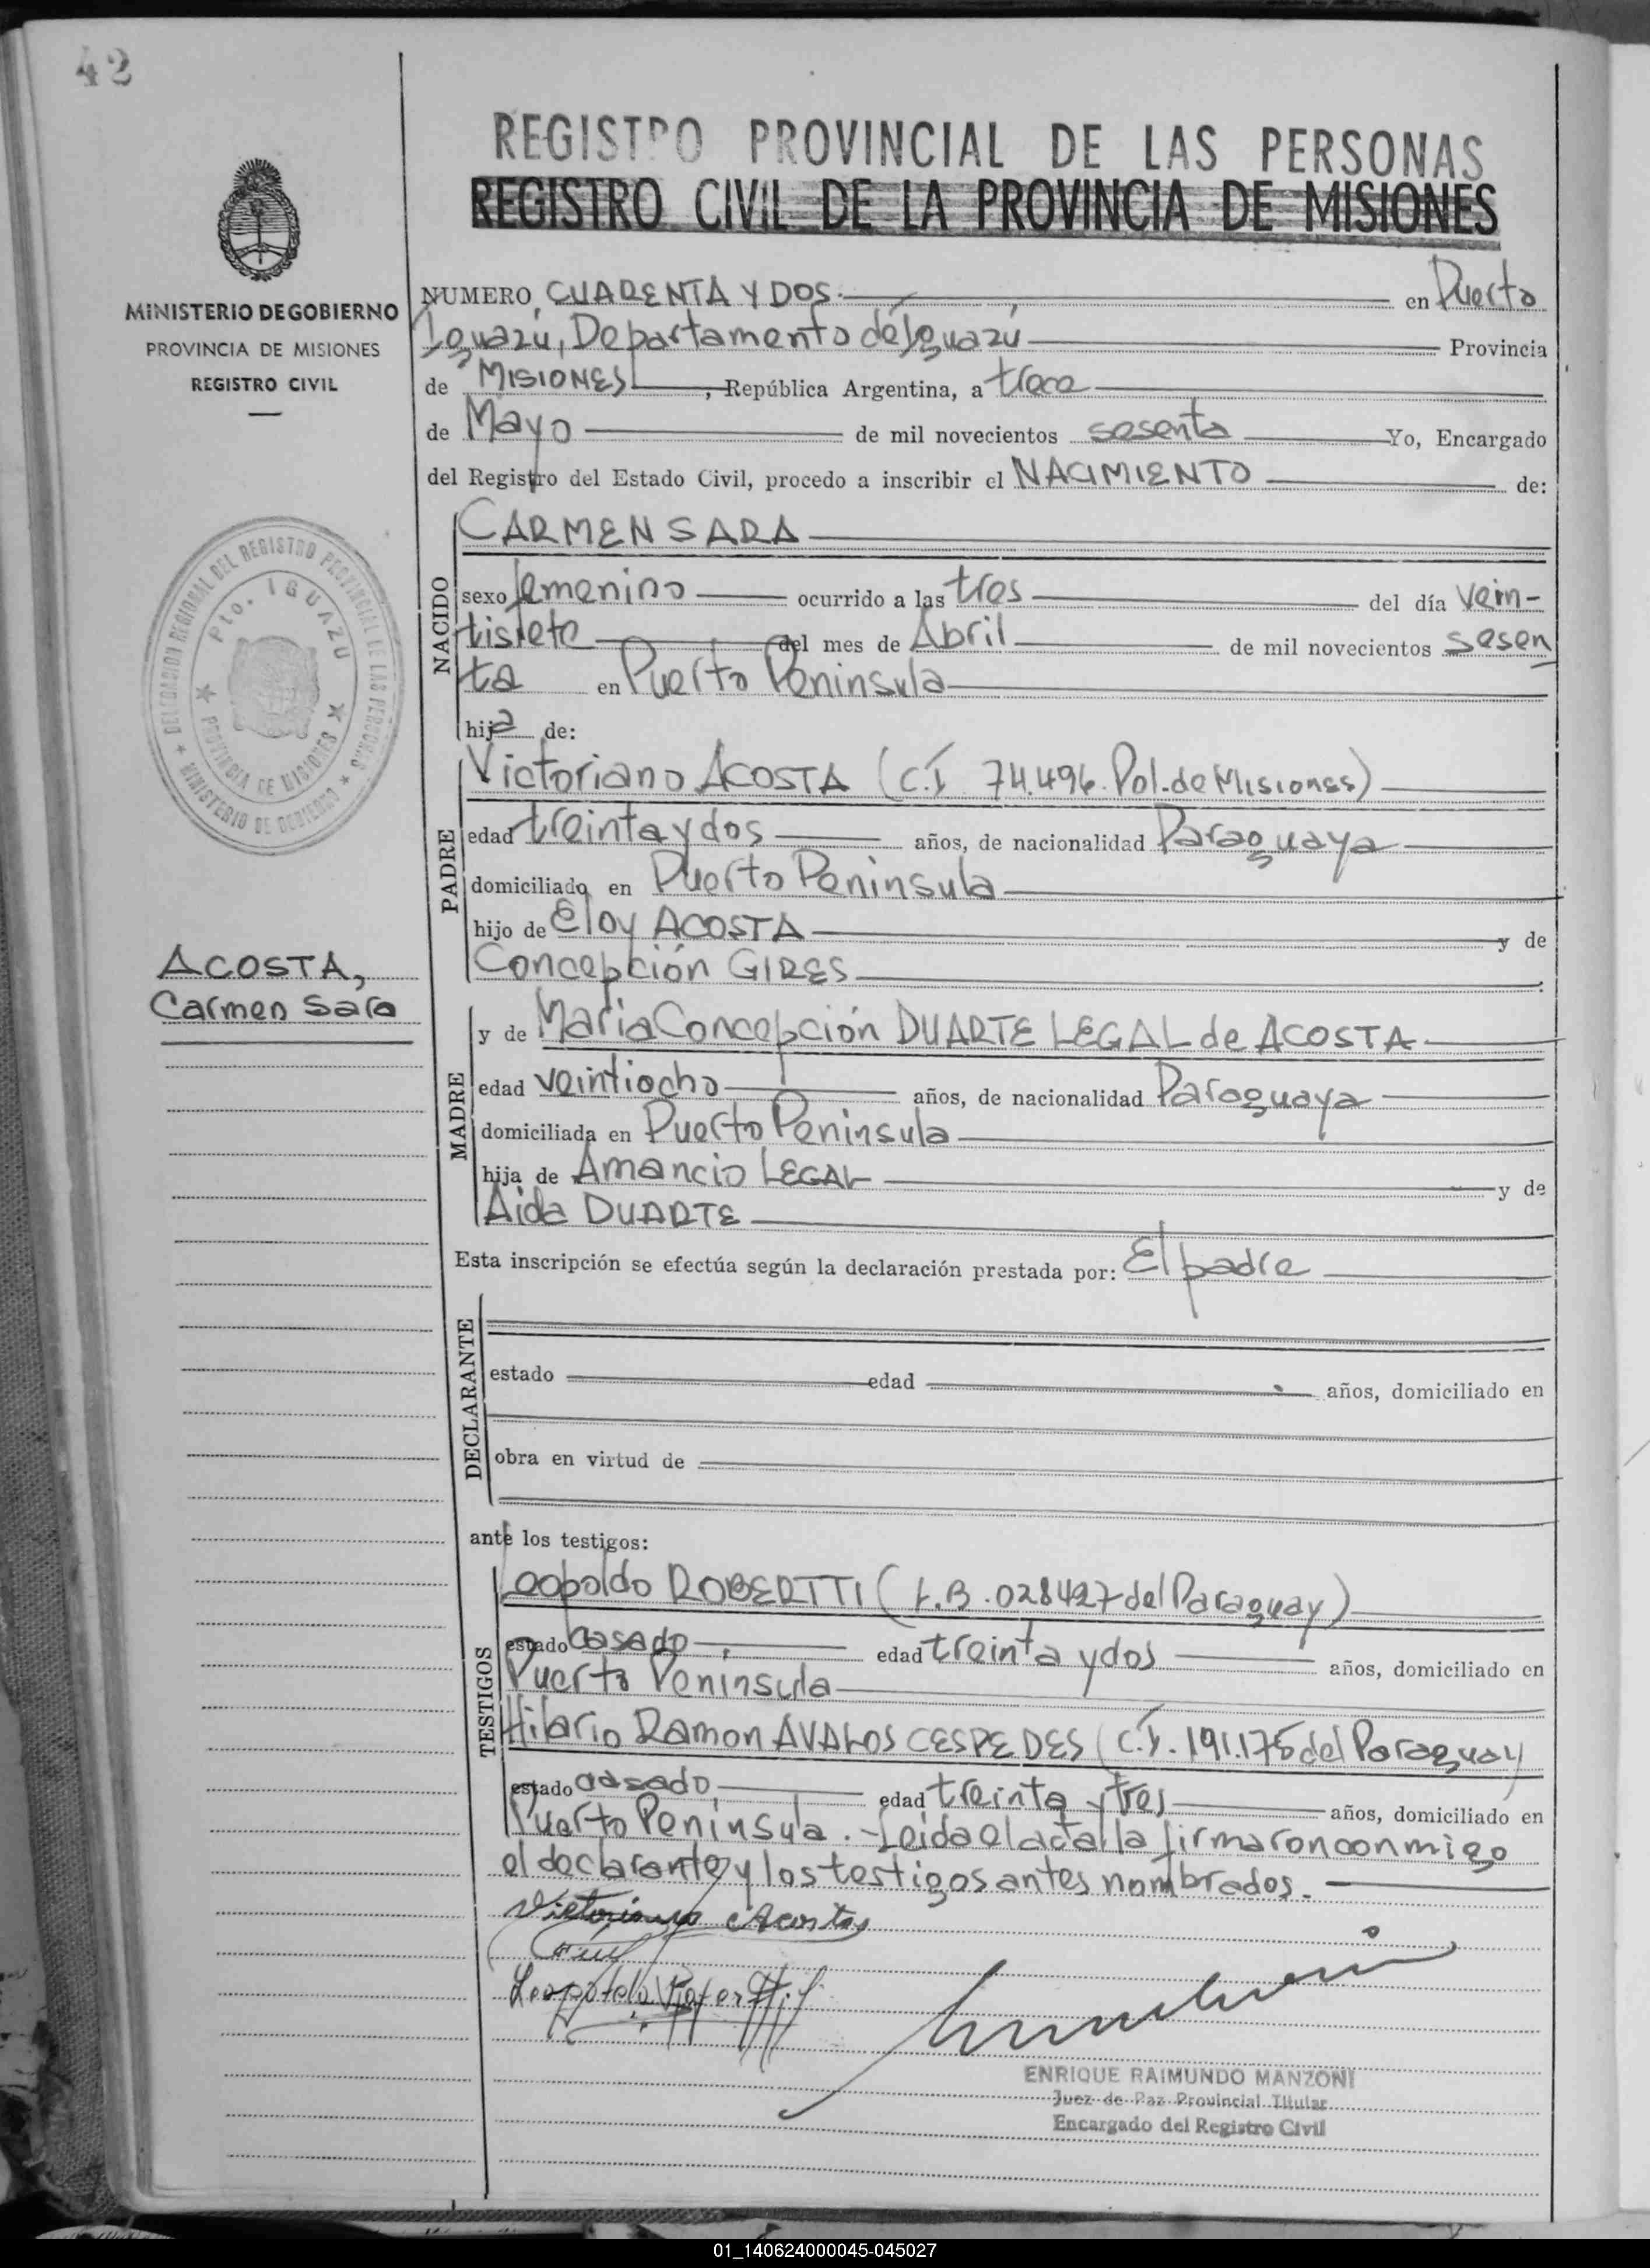 42
REGISTRO PROVINCIAL DE LAS PERSONAS
REGISTRO CIVIL DE LA PROVINCIA DE MISIONES
MINISTERIO DE GOBIERNO
PROVINCIA DE MISIONES
REGISTRO CIVIL
NUMERO CUARENTA Y DOS.- en Puerto
Iguazú, Departamento de Iguazú Provincia
de MISIONES, República Argentina, a trece
de Mayo de mil novecientos sesenta Yo, Encargado
del Registro del Estado Civil, procedo a inscribir el NACIMIENTO de:
DELEGACION REGIONAL DEL REGISTRO PROVINCIAL DE LAS PERSONAS
Pto. IGUAZU
PROVINCIA DE MISIONES
MINISTERIO DE GOBIERNO
NACIDO
CARMEN SARA
sexo femenino ocurrido a las tres del día vein-
tisiete del mes de Abril de mil novecientos sesen
ta en Puerto Península
hija de:
PADRE
Victoriano ACOSTA (C.I. 74.496. Pol. de Misiones)
edad treinta y dos años, de nacionalidad Paraguaya
domiciliado en Puerto Península
hijo de Eloy ACOSTA y de
Concepción GIRES
ACOSTA,
Carmen Sara
MADRE
y de María Concepción DUARTE LEGAL de ACOSTA
edad veintiocho años, de nacionalidad Paraguaya
domiciliada en Puerto Península
hija de Amancio LEGAL y de
Aida DUARTE
Esta inscripción se efectúa según la declaración prestada por: El padre
DECLARANTE
estado edad años, domiciliado en
obra en virtud de
ante los testigos:
TESTIGOS
Leopoldo ROBERTTI (L.B. 028427 del Paraguay)
estado casado, edad treinta y dos años, domiciliado en
Puerto Península
Hilario Ramon AVALOS CESPEDES (C.I. 191.175 del Paraguay)
estado casado, edad treinta y tres años, domiciliado en
Puerto Península.- Leida el acta la firmaron conmigo
el declarante y los testigos antes nombrados.-
Victoriano Acosta
Leopoldo
ENRIQUE RAIMUNDO MANZONI
Juez de Paz Provincial Titular
Encargado del Registro Civil
01_140624000045-045027